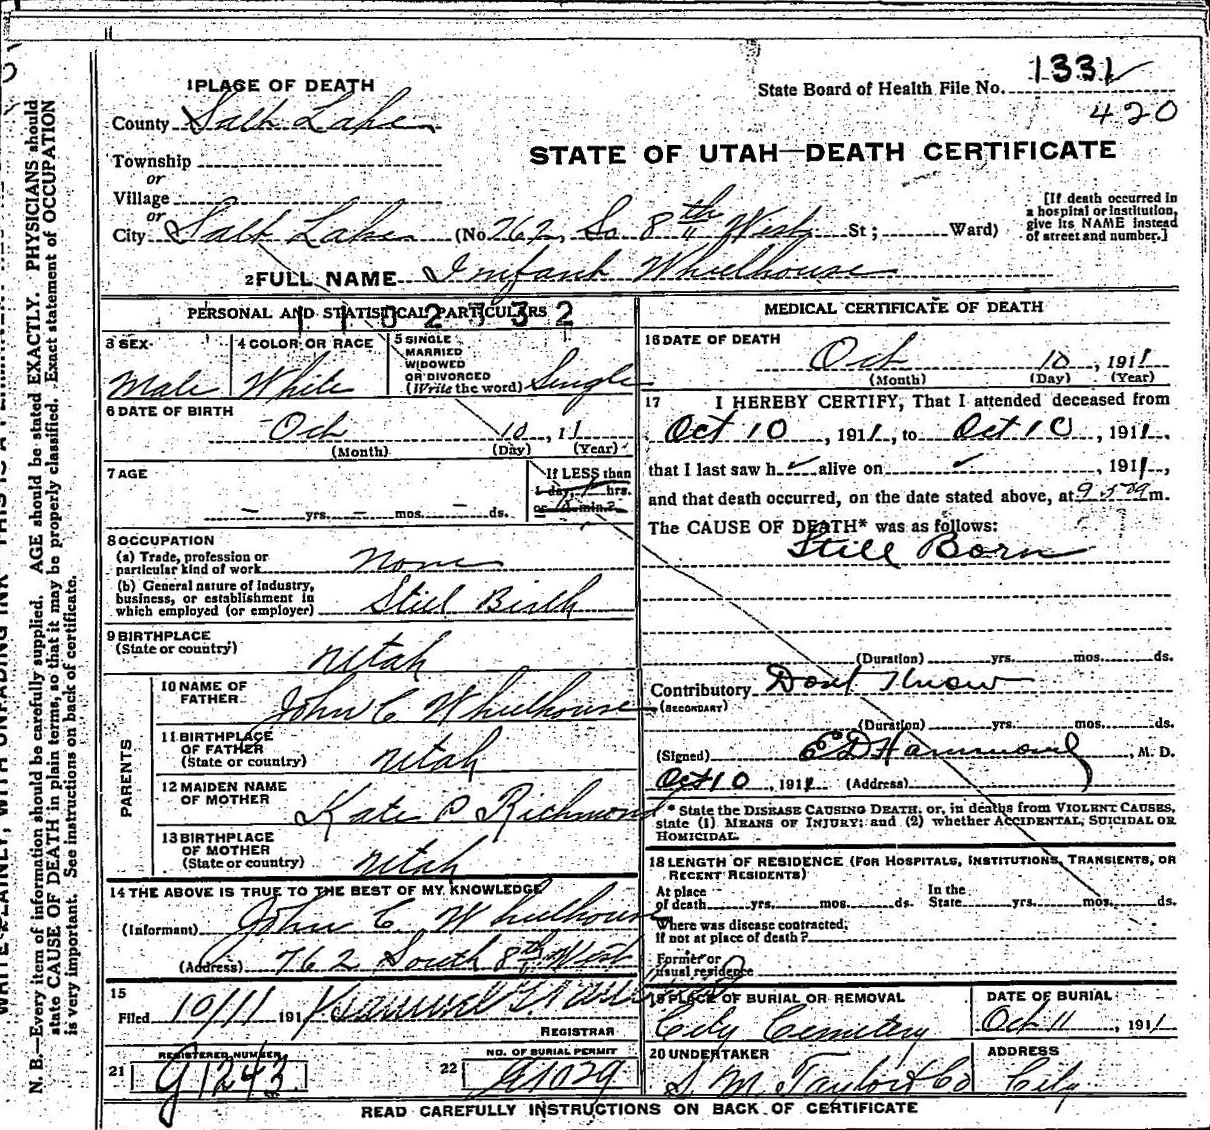 1331
State Board of Health File No.
420
1 PLACE OF DEATH
County Salt Lake
Township
or
Village
or
City Salt Lake (No 762, So 8th West St; Ward)
STATE OF UTAH—DEATH CERTIFICATE
[If death occurred in a hospital or institution, give its NAME instead of street and number.]
2 FULL NAME Infant Wheelhouse
PERSONAL AND STATISTICAL PARTICULARS
3 SEX Male
4 COLOR OR RACE White
5 SINGLE MARRIED WIDOWED OR DIVORCED (Write the word) Single
6 DATE OF BIRTH
Oct 10, 11
(Month) (Day) (Year)
7 AGE
— yrs. — mos. — ds.
If LESS than
1 day, hrs.
or min.?
8 OCCUPATION
(a) Trade, profession or particular kind of work None
(b) General nature of industry, business, or establishment in which employed (or employer) Still Birth
9 BIRTHPLACE (State or country) Utah
PARENTS
10 NAME OF FATHER John C Wheelhouse
11 BIRTHPLACE OF FATHER (State or country) Utah
12 MAIDEN NAME OF MOTHER Kate P Richmond
13 BIRTHPLACE OF MOTHER (State or country) Utah
14 THE ABOVE IS TRUE TO THE BEST OF MY KNOWLEDGE
(Informant) John C. Wheelhouse
(Address) 762 South 8th West
15
Filed 10/11 191
REGISTRAR
21 REGISTERED NUMBER G1243
22 NO. OF BURIAL PERMIT G1029
MEDICAL CERTIFICATE OF DEATH
16 DATE OF DEATH
Oct 10, 1911
(Month) (Day) (Year)
17 I HEREBY CERTIFY, That I attended deceased from
Oct 10, 1911, to Oct 10, 1911,
that I last saw h alive on , 1911,
and that death occurred, on the date stated above, at m.
The CAUSE OF DEATH* was as follows:
Still Born
(Duration) yrs. mos. ds.
Contributory Dont Know
(SECONDARY)
(Duration) yrs. mos. ds.
(Signed) Hammond, M. D.
Oct 10, 1911 (Address)
* State the DISEASE CAUSING DEATH, or, in deaths from VIOLENT CAUSES, state (1) MEANS OF INJURY; and (2) whether ACCIDENTAL, SUICIDAL OR HOMICIDAL.
18 LENGTH OF RESIDENCE (FOR HOSPITALS, INSTITUTIONS, TRANSIENTS, OR RECENT RESIDENTS)
At place of death yrs. mos. ds. In the State yrs. mos. ds.
Where was disease contracted, if not at place of death?
Former or usual residence
19 PLACE OF BURIAL OR REMOVAL City Cemetery
DATE OF BURIAL Oct 11, 1911
20 UNDERTAKER S. M. Taylor & Co
ADDRESS City
READ CAREFULLY INSTRUCTIONS ON BACK OF CERTIFICATE
N. B.—Every item of information should be carefully supplied. AGE should be stated EXACTLY. PHYSICIANS should
state CAUSE OF DEATH in plain terms, so that it may be properly classified. Exact statement of OCCUPATION
is very important. See instructions on back of certificate.